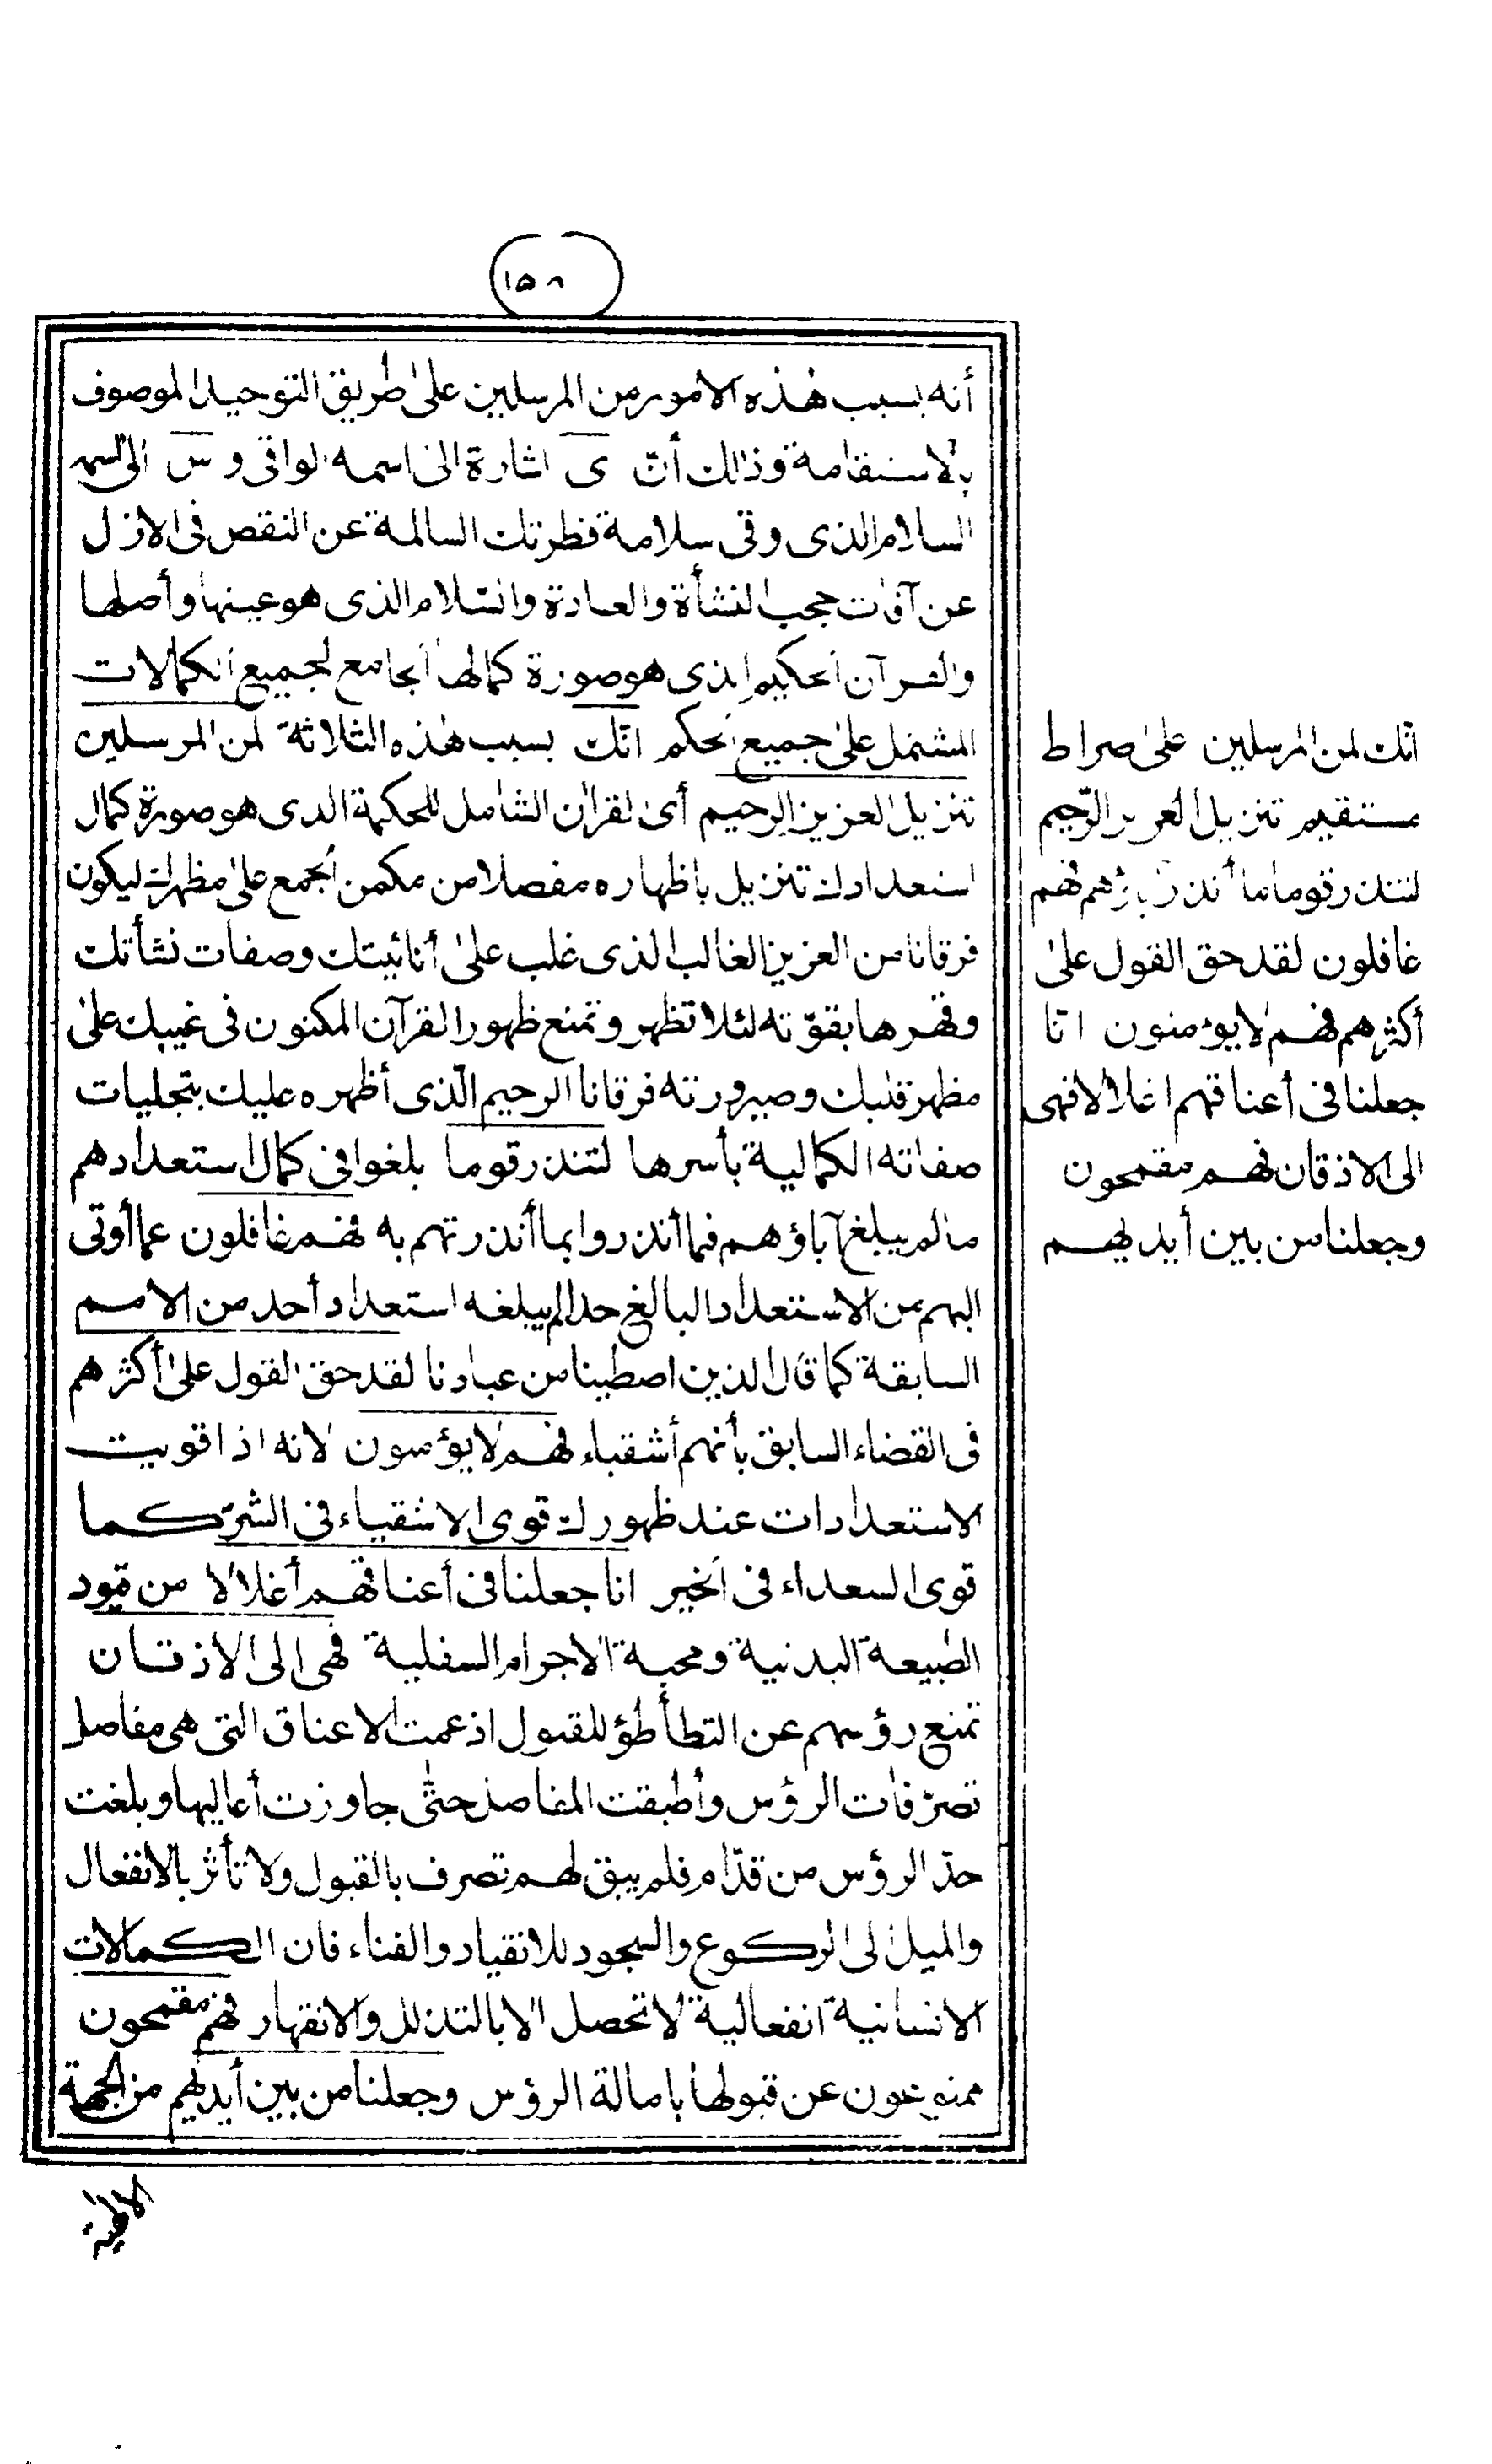 ١٥٨
أنه بسبب هٰذه الامور من المرسلين علىٰ طريق التوحيد الموصوف
بالاستقامة وذالك أنّ ى اشارة الىٰ اسمه الواقى و س الى اسمه
السلام الذى وقى سلامة فطرتك السالمة عن النقص فى الازل
عن آفات حجب النشأة والعادة والسّلام الذى هو عينها وأصلها
والقرآن الحكيم الذى هو صورة كمالها الجامع لجميع الكمالات
المشتمل علىٰ جميع الحكم انّك بسبب هٰذه الثلاثة لمن المرسلين
تنزيل العزيز الرحيم أى القرآن الشامل للحكمة الذى هو صورة كمال
استعدادك تنزيل باظهاره مفصلا من مكمن الجمع علىٰ مظهرك ليكون
فرقانا من العزيز الغالب الذى غلب علىٰ أنائيتك وصفات نشأتك
وقهرها بقوّته لئلا تظهر وتمنع ظهور القرآن المكنون فى غيبك علىٰ
مظهر قلبك وصيرورته فرقانا الرحيم الّذى أظهره عليك بتجليات
صفاته الكمالية بأسرها لتنذر قوما بلغوا فى كمال استعدادهم
ما لم يبلغ آباؤهم فما أنذروا بما أنذرتهم به فهم غافلون عما أوتى
اليهم من الاستعداد البالغ حدا لم يبلغه استعداد أحد من الامم
السابقة كما قال الذين اصطينا من عبادنا لقد حق القول علىٰ أكثرهم
فى القضاء السابق بأنهم أشقياء فهم لا يؤمنون لانه اذا قويت
الاستعدادات عند ظهورك قوى الاشقياء فى الشرّ كما
قوى السعداء فى الخير انا جعلنا فى أعناقهم أغلالا من قيود
الطبيعة البدنية ومحبة الاجرام السفلية فهى الى الاذقان
تمنع رؤسهم عن التطأطؤ للقبول اذ عمت الاعناق التى هى مفاصل
تصرّفات الرؤس وأطبقت المفاصل حتّٰى جاوزت أعاليها وبلغت
حدّ الرؤس من قدّام فلم يبق لهم تصرف بالقبول ولا تأثر بالانفعال
والميل الى الركوع والسجود للانقياد والفناء فان الكمالات
الانسانية انفعالية لا تحصل الا بالتذلل والانقهار فهم مقمحون
ممنوعون عن قبولها بامالة الرؤس وجعلنا من بين أيديهم من الجهة
انّك لمن المرسلين علىٰ صراط
مستقيم تنزيل العزيز الرّحيم
لتنذر قوما ما أنذر آباؤهم فهم
غافلون لقد حق القول علىٰ
أكثرهم فهم لا يؤمنون انّا
جعلنا فى أعناقهم اغلالا فهى
الى الاذقان فهم مقمحون
وجعلنا من بين أيديهم